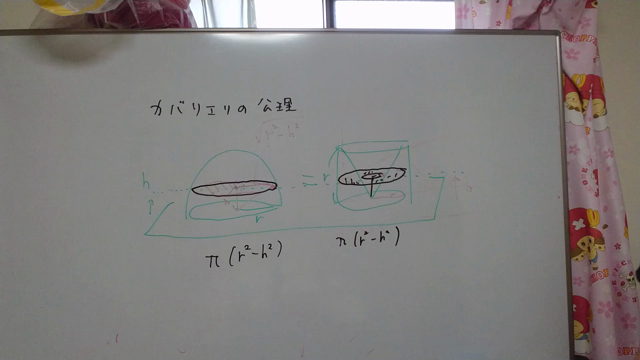 カバリエリの公理
√r²-h²
h
r
r
π(r²-h²)
π(r²-h²)